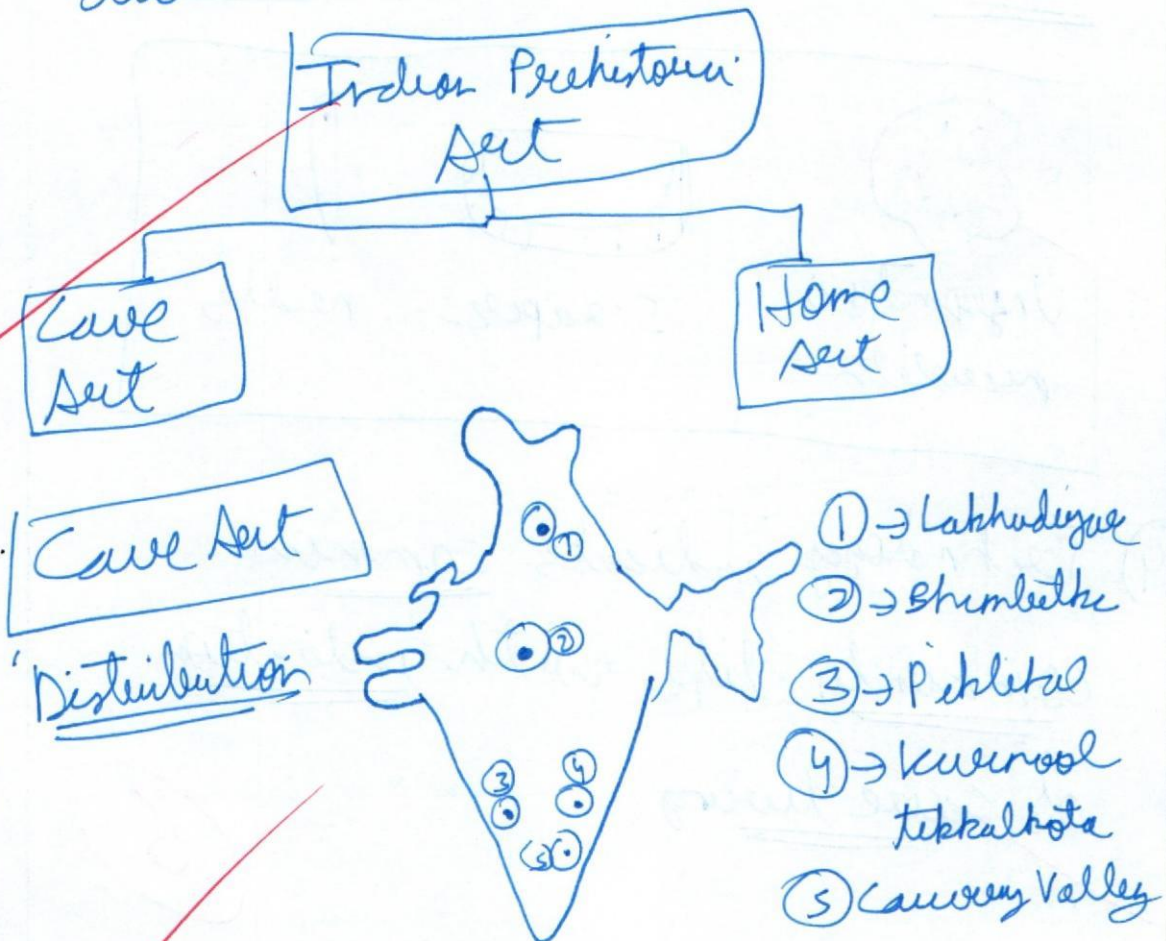 Indian Prehistoric
Art
Cave
Art
Home
Art
Cave Art
Distribution
①
②
③
④
⑤
① → Lakhudiyar
② → Bhimbetka
③ → Piklihal
④ → Kurnool
tekkalkota
⑤ Cauvery Valley